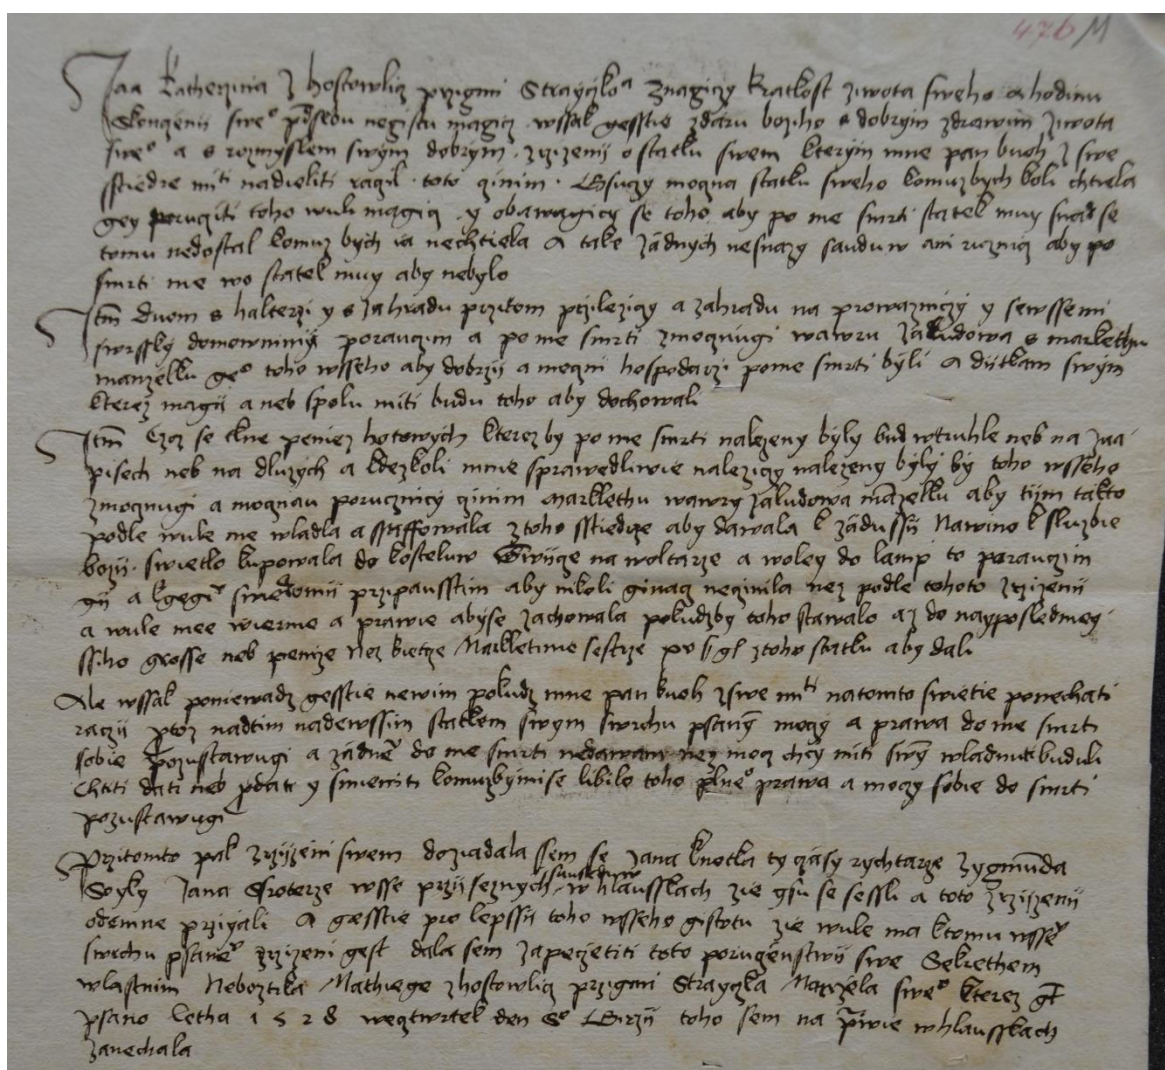 476 M
Jaa Katherzina z hostowlicz przigmi Strayczkoa znagiczy kratkost ziwota sweho a hodinu
skonczenii sweo przisedu negistu magicz wssak gesstie zdaru boziho s dobrym zdrawim ziwota
sweo a s rozmyslem swym dobrym zrzizenij o statku swem kterym mne pan buoh z swe
sstiedre mti nadieliti raczil toto czinim Gsuczy moczna statku sweho komuzbych koli chtiela
gey porucziti toho wuli magicz y obawagiczy se toho aby po me smrti statek muy snad se
tomu nedostal komuz bych ia nechtiela A take zadnych nesnazy sauduw ani ruznicz aby po
smrti me wo statek muy aby nebylo
Itm duom s halterzi y s zahradu przitom przileziczy a zahradu na prowazniczy y sewssemi
swrssky domownimi porauczim a po me smrti zmocznugi wawru zaludowa s markethu
manzelku geo toho wsseho aby dobrzij a moczni hospodarzi po me smrti byli A ditkam swym
kterez magii a neb spolu miti budu toho aby dochowali
Itm Czoz se tkne peniez hotowych kterezby po me smrti nalezeny byly bud wtruhle neb na zaa
pisech neb na dluzych a kdezkoli mnie sprawedliwie nalezigy nalezeny byly by toho wsseho
zmocznugi a mocznau porucznicy czinim Markkethu wawry zaludowa manzelku aby tijm takto
podle wule me wladla a ssaffowala ztoho sstiedrze aby dawala k zadussij Nawino k sluzbie
bozij swietlo kupowala do kosteluw Swijcze na woltarze a woleg do lamp to porauczim
gij a kgegim swiedomij przipausstim aby nikoli ginacz neczinila nez podle tohoto zrzizenij
a wule mee wierme a prawie abyse zachowala pokudzby toho stawalo az do nayposledniey
ssiho grosse neb penize Nez kietze Markketinie sestrze po ss gr ztoho statku aby dali
Ale wssak poniewadz gesstie newim pokudz mne pan buoh zswe mti natomto swietie ponechati
raczij protoz nadtim nadewssim statkem swym swrchu psanym moczy a prawa do me smrti
sobie pozustawugi a zadnemu do me smrti nedawam nez mocz chcy miti swym wladnuti buduli
Chtiti dati neb prodati y smieniti komuzbymise libilo toho plneo prawa a moczy sobie do smrti
pozustawugi
Przitomto pak zrzijzeni swem dozadala sem se Jana knotka ty czasy rychtarze zygmunda
Soyky Jana Sroterze wsse przijseznych sauseduw w hlausskach zie gsu se sessli a toto zrzijzenij
odemne przigali A gesstie pro lepssij toho wsseho gistotu zie wule ma ktomu wssemu
swrchu psanemu zrzizeni gest dala sem zapeczetiti toto poruczenstwij swe Sekrethem
wlastnim Neboztika Mathiege zhostowlicz przigmi Strayczka Manzela sweo kterez gest
psano letha 1528 wecztwrtek den So Girzij toho sem na prawie whlausskach
zanechala